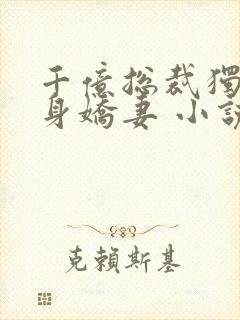 千億總裁獨
身嬌妻 小說
克賴斯基